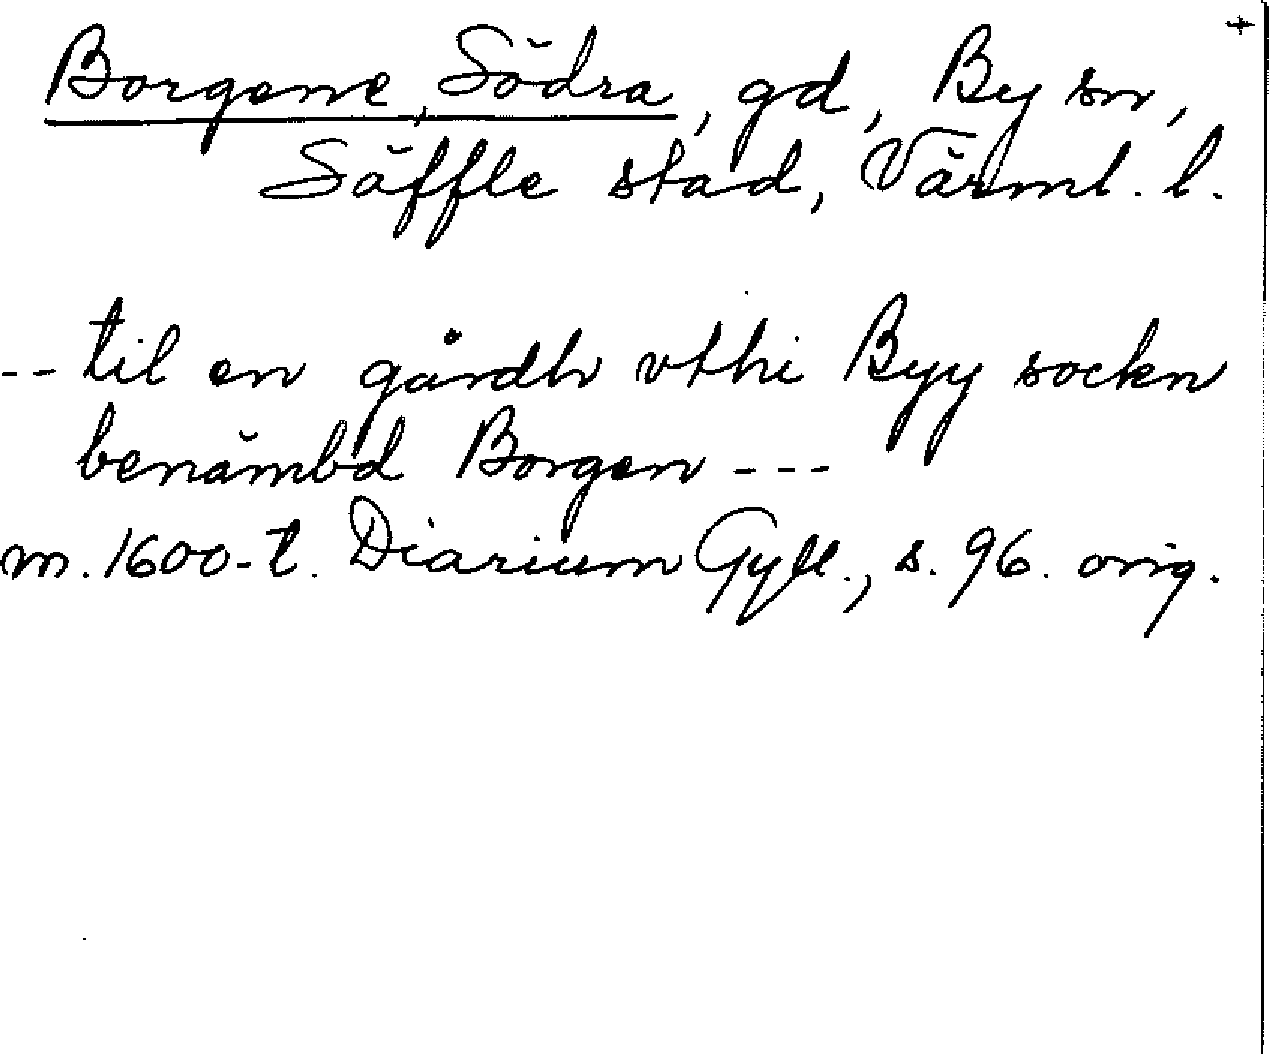 +
Borgene, Södra, gd, By sn,
Säffle stad, Värml. l.
-- til en gårdh vthi Byy sockn
benämbd Borgen ---
m. 1600-t. Diarium Gyll., s. 96. orig.